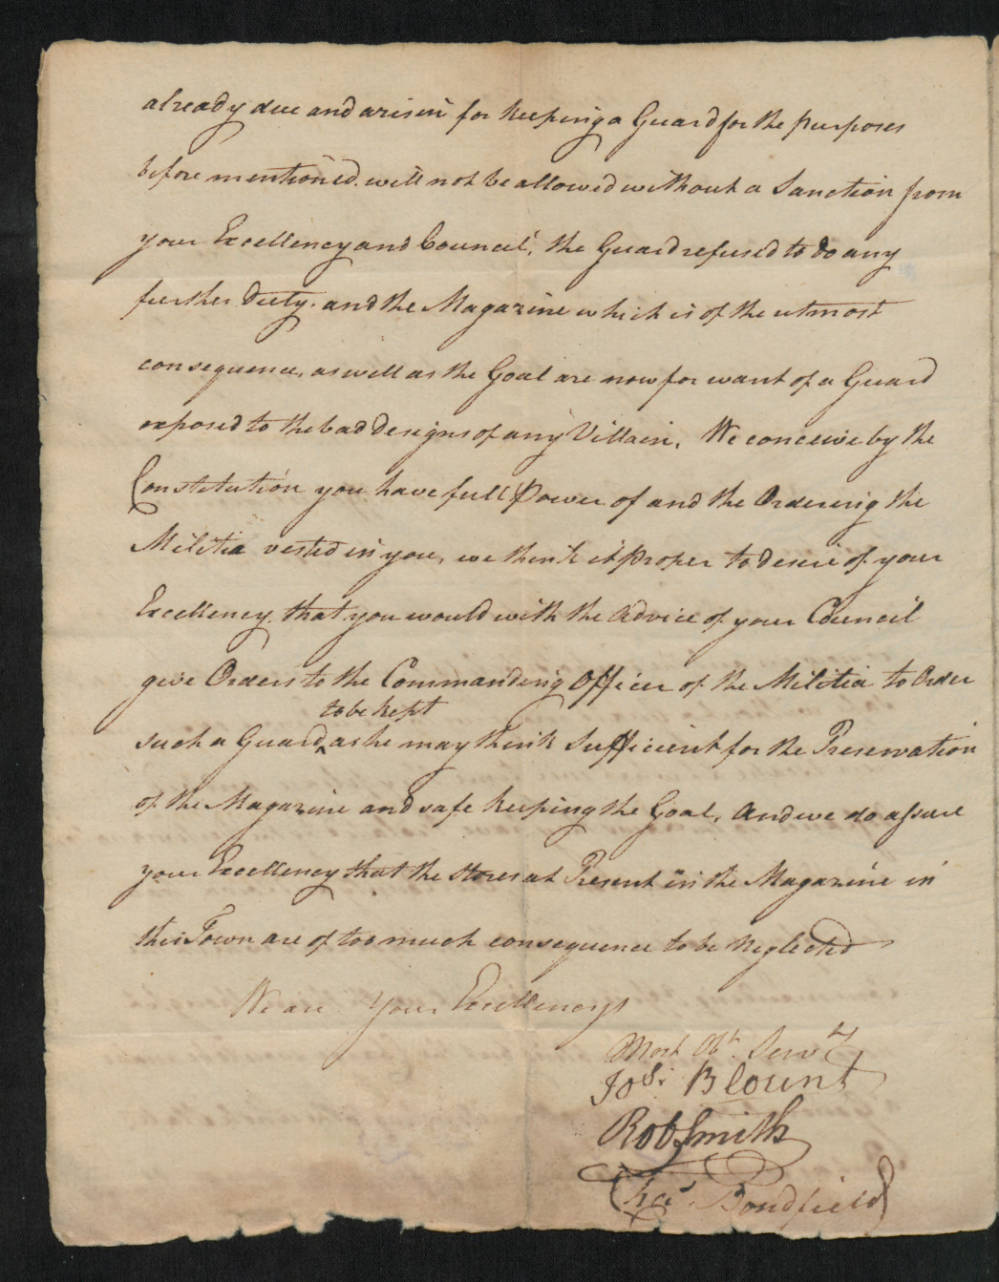 already due and arisin for keeping a Guard for the purposes
before mentioned. will not be allowed without a Sanction from
your Excellency and Council, the Guard refused to do any
further Duty. and the Magazine which is of the utmost
consequence, as well as the Goal are now for want of a Guard
exposed to the bad Designs of any Villain. We conceive by the
Constitution you have full Power of and the Ordering the
Militia vested in you, we think it Proper to Desire of your
Excellency that you would with the Advice of your Council
give Orders to the Commanding Officer of the Militia to Order
to be kept
such a Guard, as he may think Sufficient for the Preservation
of the Magazine and safe keeping the Goal, And we do assure
your Excellency that the stores at Present in the Magazine in
this Town are of too much consequence to be Neglected
We are Your Excellencys
Most Obt. Servts
Jos. Blount
Rob Smith
Chas. Bondfield